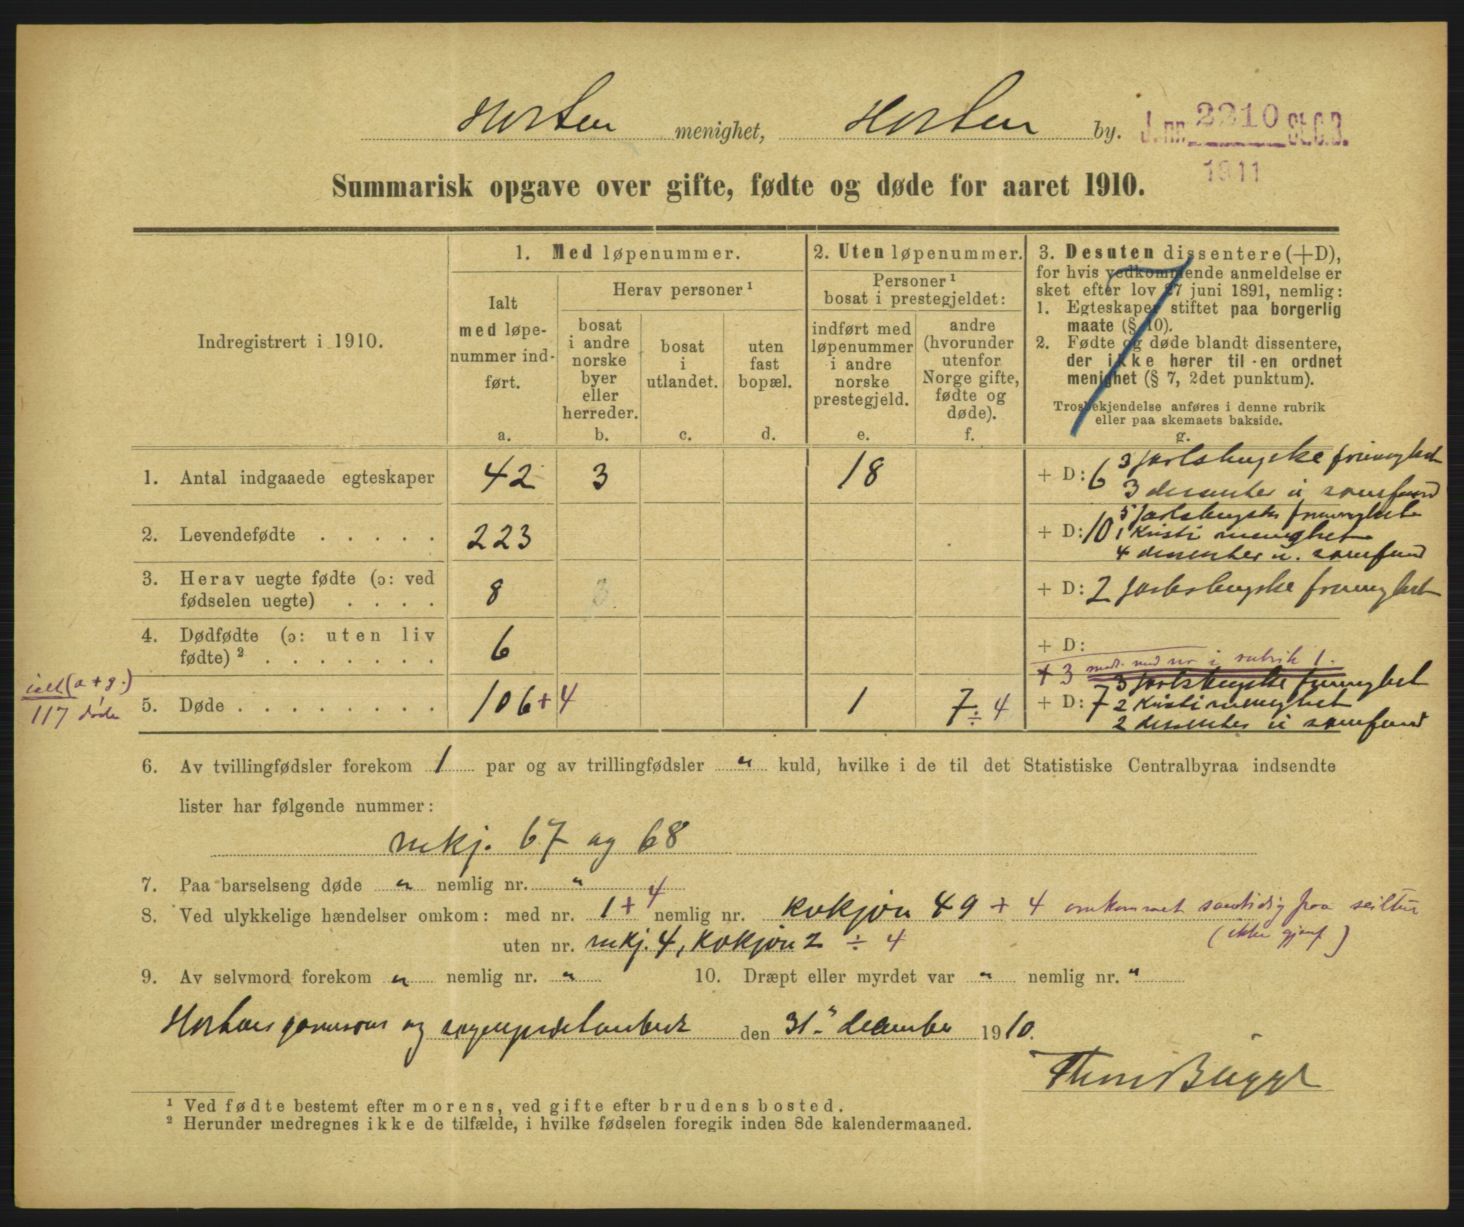 Horten menighet, Horten by. J. nr. 2210 St.C.B.
1911
Summarisk opgave over gifte, fødte og døde for aaret 1910.
Indregistrert i 1910.
1. Med løpenummer.
Ialt med løpe-
nummer ind-
ført.
a.
Herav personer ¹
bosat
i andre
norske
byer
eller
herreder.
b.
bosat
i
utlandet.
c.
uten
fast
bopæl.
d.
2. Uten løpenummer.
Personer ¹
bosat i prestegjeldet:
indført med
løpenummer
i andre
norske
prestegjeld.
e.
andre
(hvorunder
utenfor
Norge gifte,
fødte og
døde).
f.
3. Desuten dissentere (+D),
for hvis vedkommende anmeldelse er
sket efter lov 27 juni 1891, nemlig:
1. Egteskaper stiftet paa borgerlig
maate (§ 10).
2. Fødte og døde blandt dissentere,
der ikke hører til en ordnet
menighet (§ 7, 2det punktum).
Trosbekjendelse anføres i denne rubrik
eller paa skemaets bakside.
g.
1. Antal indgaaede egteskaper 42 3 18 + D: 6 3 Jarlsbergske frimenighet
3 dissenter u samfund
2. Levendefødte . . . . . 223 + D: 10 5 Jarlsbergske frimenighet
1 Kristi menighet
4 dissenter u. samfund
3. Herav uegte fødte (ɔ: ved
fødselen uegte) . . . . 8 3 + D: 2 Jarlsbergske frimenighet
4. Dødfødte (ɔ: uten liv
fødte) ² . . . . . . . 6 + D:
+ 3 medr. med nr i rubrik 1.
ialt (a + g.)
117 døde
5. Døde . . . . . . . . . 106 + 4 1 7 ÷ 4 + D: 7 3 Jarlsbergske frimenighet
2 Kristi menighet
2 dissenter u samfund
6. Av tvillingfødsler forekom 1 par og av trillingfødsler " kuld, hvilke i de til det Statistiske Centralbyraa indsendte
lister har følgende nummer:
mkj. 67 og 68
7. Paa barselseng døde " nemlig nr. "
8. Ved ulykkelige hændelser omkom: med nr. 1 + 4 nemlig nr. kvkjøn 49 + 4 omkommet samtidig paa seiltur
(ikke gjenf)
uten nr. mkj. 4, kvkjøn 2 ÷ 4
9. Av selvmord forekom " nemlig nr. " 10. Dræpt eller myrdet var " nemlig nr. "
Hortens garnisons og sogneprestembede den 31. december 1910.
Thv. Bugge
¹ Ved fødte bestemt efter morens, ved gifte efter brudens bosted.
² Herunder medregnes ikke de tilfælde, i hvilke fødselen foregik inden 8de kalendermaaned.